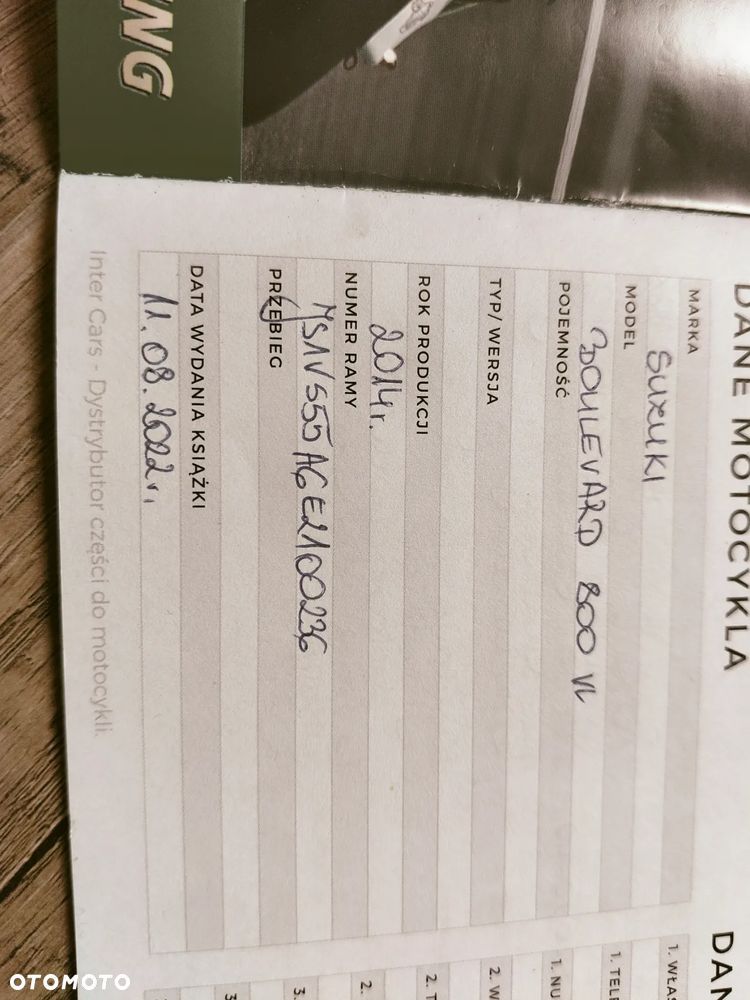 NG
DANE MOTOCYKLA
MARKA
SUZUKI
MODEL
BOULEVARD 800 VL
POJEMNOŚĆ
TYP/ WERSJA
ROK PRODUKCJI
2014r.
NUMER RAMY
JS1VS55A6E2100236
PRZEBIEG
DATA WYDANIA KSIĄŻKI
11.08.2022r.
Inter Cars - Dystrybutor części do motocykli.
DAN
1. WŁA
1. TELE
1. NU
2. W
2. T
2.
3.
3
OTOMOTO